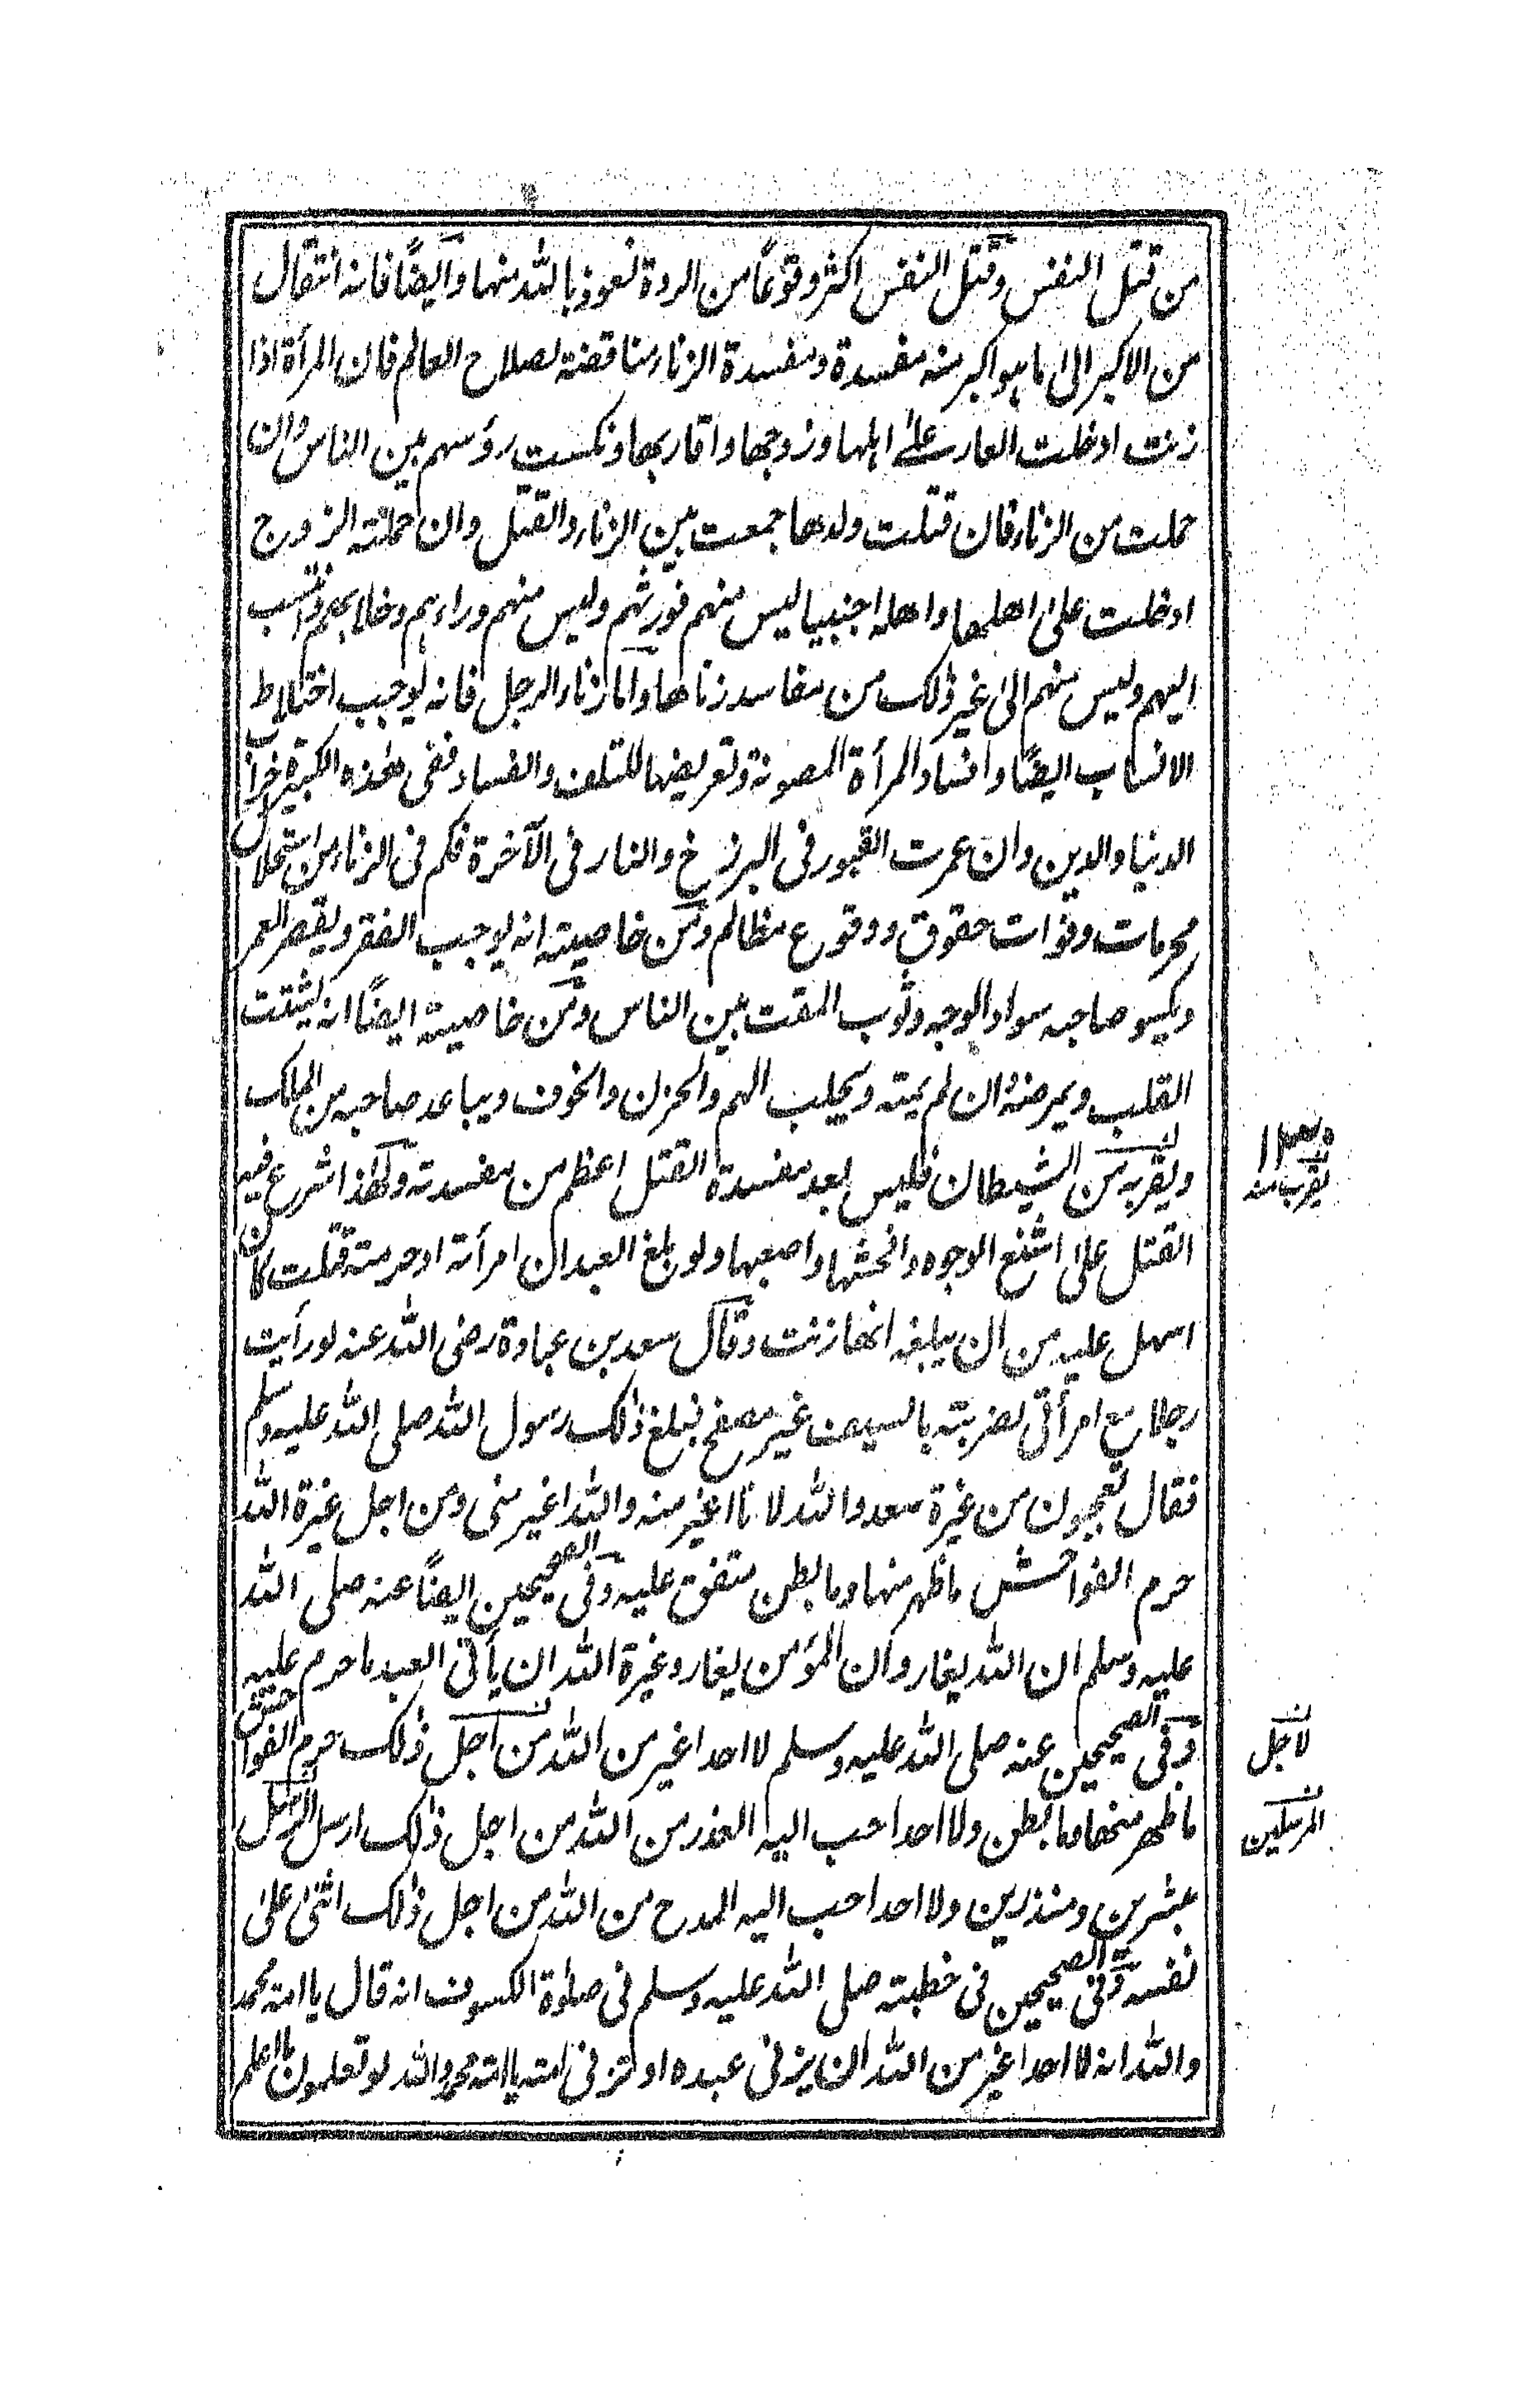 من قتل النفس وقتل النفس اكثر وقوعًا من الردة نعوذ بالله منها وايضًا فانه انتقال
من الاكبر الى ما هو اكبر منه مفسدة ومفسدة الزناء مناقضة لصلاح العالم فان المرأة اذا
زنت ادخلت العار على اهلها وزوجها واقاربها ونكست رؤسهم بين الناس وان
حملت من الزناء فان قتلت ولدها جمعت بين الزناء والقتل وان حملته الزوج
ادخلت على اهلها واهله اجنبيا ليس منهم فورثهم وليس منهم وراءهم وخلا بهم وانتسب
اليهم وليس منهم الى غير ذلك من مفاسد زناها واما زناء الرجل فانه يوجب اختلاط
الانساب ايضًا وافساد المرأة المصونة وتعريضها للتلف والفساد ففى هذه الكبيرة خراب
الدنيا والدين وان عمرت القبور فى البرزخ والنار فى الآخرة فكم فى الزناء من استحلال
محرمات وفوات حقوق ووقوع مظالم ومن خاصيته انه يوجب الفقر ويقصر العمر
ويكسو صاحبه سواد الوجه وثوب المقت بين الناس ومن خاصيته ايضًا انه يشتت
القلب ويمرضه ان لم يمته ويجلب الهم والحزن والخوف ويباعد صاحبه من الملك
ويقربه من الشيطان فليس بعد مفسدة القتل اعظم من مفسدته ولهذا شرع فيه
القتل على اشنع الوجوه وافحشها واصعبها ولو بلغ العبد ان امرأته او حرمته قتلت كان
اسهل عليه من ان يبلغه انها زنت وقال سعد بن عبادة رضى الله عنه لو رأيت
رجلا مع امرأتى لضربته بالسيف غير مصفح فبلغ ذلك رسول الله صلى الله عليه وسلم
فقال تعجبون من غيرة سعد والله لانا اغير منه والله اغير منى ومن اجل غيرة الله
حرم الفواحش ما ظهر منها وما بطن متفق عليه وفى الصحيحين ايضًا عنه صلى الله
عليه وسلم ان الله يغار وان المؤمن يغار وغيرة الله ان يأتى العبد ما حرم عليه
وفى الصحيحين عنه صلى الله عليه وسلم لا احد اغير من الله من اجل ذلك حرم الفواحش
ما ظهر منها وما بطن ولا احد احب اليه العذر من الله من اجل ذلك ارسل الرسل
مبشرين ومنذرين ولا احد احب اليه المدح من الله من اجل ذلك اثنى على
نفسه وفى الصحيحين فى خطبته صلى الله عليه وسلم فى صلوة الكسوف انه قال يا امة محمد
والله انه لا احد اغير من الله ان يزنى عبده او تزنى امته يا امة محمد والله لو تعلمون ما اعلم
يقرب منه
لاجل
المرسلين